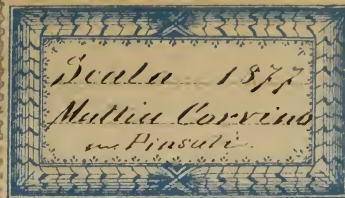 Scala 1877
Mattia Corvino
m Pinsuti